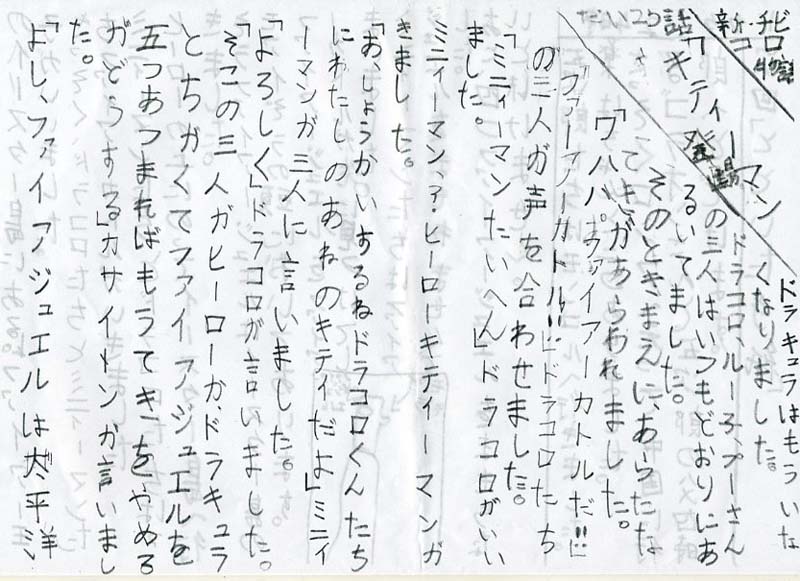 新・チビ
コロ物語
だい25
話「キティーマン
登場」
ドラキュラはもういな
くなりました。
ドラコロ、ルー子、プーさん
の三人はいつもどおりにあ
るいてました。
そのときまえに、あらたな
てきがあらわれました。
「ワハハ、ファイアーカトルだ!!」
「ファイアーカトル!!」ドラコロたち
の三人が声を合わせました。
「ミニィーマンたいへん」ドラコロがいい
ました。
ミニィーマン、？・ヒーローキティーマンが
きました。
「あ、しょうかいするねドラコロくんたち
にわたしのあねのキティだよ」ミニィ
ーマンが三人に言いました。
「よろしく」ドラコロが言いました。
「そこの三人がヒーローか、ドラキュラ
とちがくてファイアジュエルを
五つあつまればもうてきをやめる
がどうする」カサイトンが言いまし
た。
「よし、ファイアジュエルは太平洋、